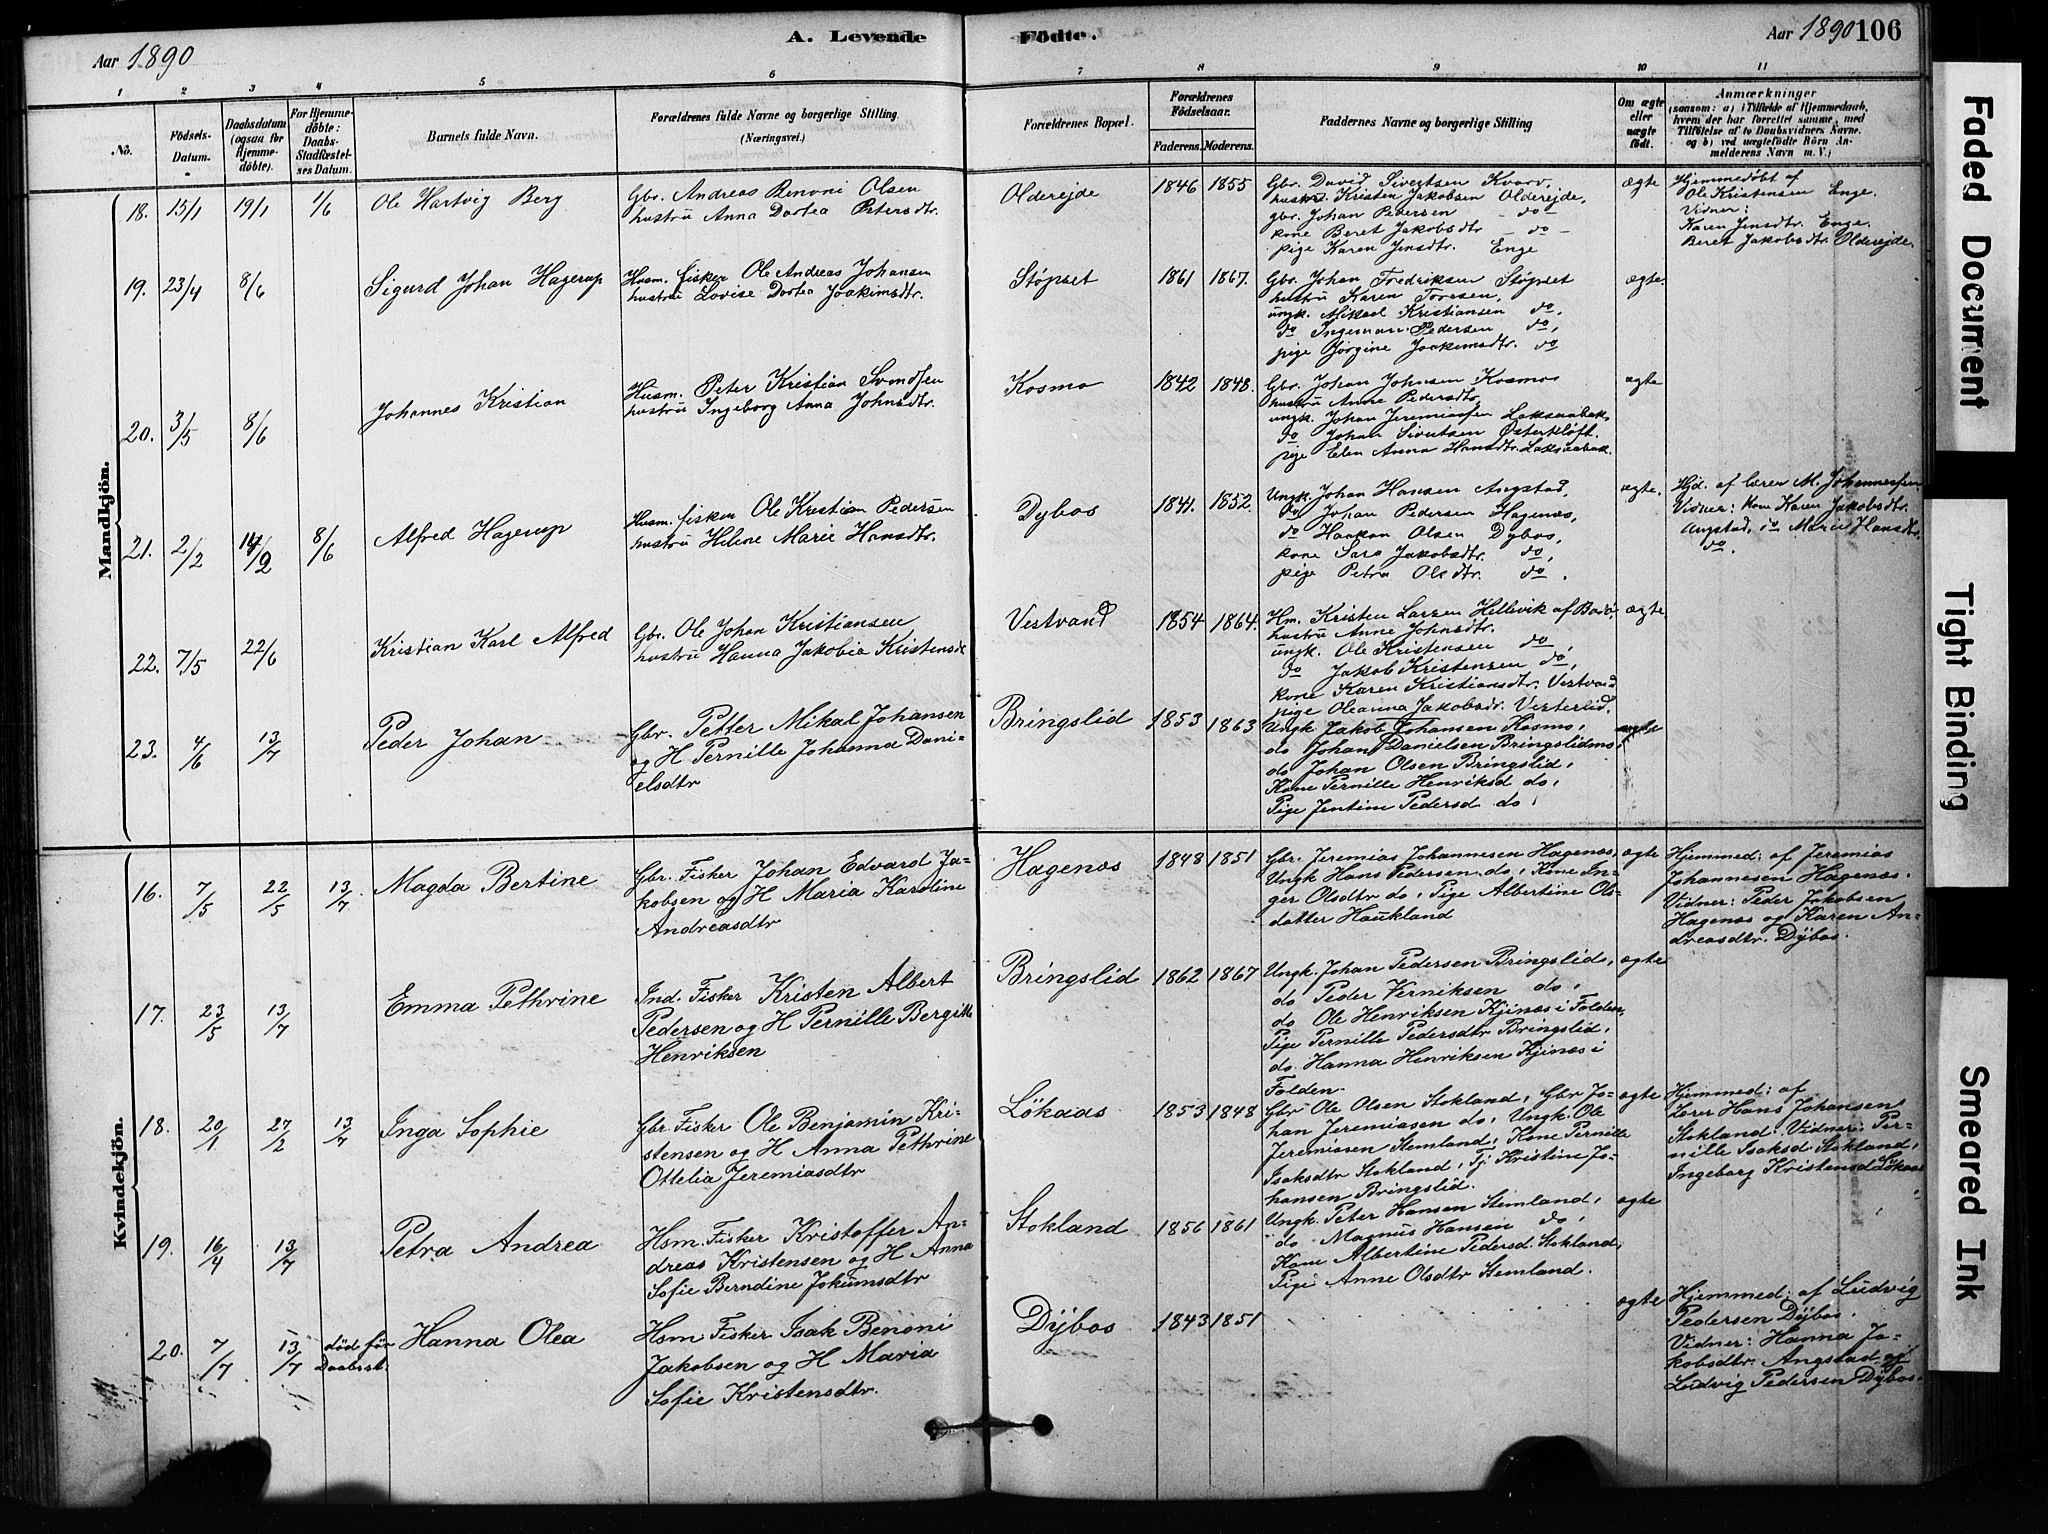 Aar 1890
A. Levende Födte.
Aar 1890 106
1 2 3 4 5 6 7 8 9 10 11
No.
Födsels-
Datum.
Daabsdatum
(ogsaa for
Hjemme-
döbte).
For Hjemme-
döbte:
Daabs-
Stadfæstel-
ses Datum.
Barnets fulde Navn.
Forældrenes fulde Navne og borgerlige Stilling
(Næringsvei.)
Forældrenes Bopæl.
Forældrenes
Födselsaar.
Faderens. Moderens.
Faddernes Navne og borgerlige Stilling
Om ægte
eller
uægte
födt.
Anmærkninger
(saasom: a) i Tilfælde af Hjemmedaab,
hvem der har forrettet samme, med
Tilföielse af to Daabsvidners Navne.
og b) ved uægtefödte Börn An-
melderens Navn m. V.)
Mandkjön.
18. 15/1 19/1 1/6 Ole Hartvig Berg
Gbr. Andreas Benoni Olsen
hustru Anna Dortea Petersdtr.
Olderejde 1846 1855
Gbr. David Sivertsen Kvarv,
hustru Kristen Jakobsen Olderejde,
gbr. Johan Pedersen do
kone Beret Jakobsdtr do
pige Karen Jensdtr. Enge
ægte
Hjemmedøbt af
Ole Kristensen Enge.
Vidner:
Karen Jensdtr. Enge.
Beret Jakobsdtr. Olderejde.
19. 23/4 8/6 Sigurd Johan Hagerup
Husm. fisker Ole Andreas Johansen
hustru Lovise Dortea Joakimsdtr.
Støpset 1861 1867.
Gbr. Johan Fredriksen Støpset
hustru Karen Toresen,
ungk. Mikael Kristiansen do,
do Ingeman Pedersen, do,
pige Jørgine Joakimsdtr. do
ægte.
20. 3/5 8/6 Johannes Kristian
Husm. Peter Kristian Svendsen
hustru Ingeborg Anna Johnsdtr.
Kosmo 1842 1848.
Gbr. Johan Johnsen Kosmos
hustru Anne Pedersdtr,
ungk. Johan Jeremiassen Laksaabak,
do Johan Sivertsen Østerkløft.
pige Elen Anna Hansdtr. Laksaabak.
ægte
21. 2/2 14/2 8/6 Alfred Hagerup
Husm. fisker Ole Kristian Pedersen
hustru Helene Marie Hansdtr.
Dybos 1841. 1852.
Ungk. Johan Hansen Angstad,
do Johan Pedersen Hagenæs,
do Haakon Olsen Dybos,
kone Sara Jakobsdtr. do,
pige Petra Olsdtr. do.
ægte.
Hjd. af lærer M. Johannessen
Vidner: kone Karen Jakobsdtr.
Angstad, do Marie Hansdtr.
do.
22. 7/5 22/6 Kristian Karl Alfred
Gbr. Ole Johan Kristiansen
hustru Hanna Jakobia Kristensdr
Vestvand 1854 1864.
Hm. Kristen Larsen Hellevik af Bodø,
hustru Anne Johnsdtr.
ungk. Ole Kristensen do,
do Jakob Kristensen do,
kone Karen Kristiansdtr. Vestvand
pige Oleanna Jakobsdr. Vesterlid.
ægte
23. 4/6 13/7 Peder Johan
Gbr. Petter Mikal Johansen
og H Pernille Johanna Dani-
elsdtr
Bringslid 1853 1863
Ungk Jakob Johansen Kosmo,
do Johan Danielsen Bringslidmo,
do Johan Olsen Bringslid,
Kone Pernille Henriksd do,
Pige Jentine Pedersd do.
ægte
Kvindekjön.
16. 7/5 22/5 13/7 Magda Bertine
Gbr. Fisker Johan Edvard Ja-
kobsen og H Maria Karoline
Andreasdtr
Hagenæs 1848 1851
Gbr. Jeremias Johannesen Hagenæs,
Ungk Hans Pedersen do, Kone In-
ger Olsdtr do, Pige Albertine Ols-
datter Haukland
ægte
Hjemmed: af Jeremias
Johannesen Hagenæs.
Vidner: Peder Jakobsen
Hagenæs og Karen An-
dreasdtr. Dybos.
17. 23/5 13/7 Emma Pethrine
Ind. Fisker Kristen Albert
Pedersen og H Pernille Bergitte
Henriksen
Bringslid 1862 1867
Ungk. Johan Pedersen Bringslid,
do Peder Verniksen do,
do Ole Henriksen Kjinæs i Folden,
Pige Pernille Pedersdtr Bringslid,
do. Hanna Henriksen Kjinæs i
Folden
ægte
18. 20/1 27/2 13/7 Inga Sophie
Gbr. Fisker Ole Benjamin Kri-
stensen og H Anna Pethrine
Ottelia Jeremiasdtr
Lökaas 1853 1848
Gbr Ole Olsen Stokland, Gbr Jo-
han Jeremiasen do, Ungk. Ole
Jeremiasen Stemland, Kone Pernille
Isaksdtr Stokland, Tj Kristine Jo-
hansen Bringslid.
ægte
Hjemmed: af
Lærer Hans Johansen
Stokland. Vidner: Per-
nille Isaksd. Stokland,
Ingeborg Kristensd Lökaas
19. 16/4 13/7 Petra Andrea
Hsm. Fisker Kristoffer An-
dreas Kristensen og H Anna
Sofie Berndine Jokumsdtr
Stokland 1856 1861
Ungk. Peter Hansen Stemland,
do Magnus Hansen do,
Kone Albertine Pedersd. Stokland,
Pige Anne Olsdtr Stemland.
ægte
20. 7/7 13/7 död för
Daabsst. Hanna Olea
Hsm Fisker Isak Benoni
Jakobsen og H Maria
Sofie Kristensdtr.
Dybos 1843 1851
ægte
Hjemmed: af Ludvig
Pedersen Dybos.
Vidner: Hanna Ja-
kobsdtr. Angstad og
Ludvig Pedersen Dybos.
Faded Document
Tight Binding
Smeared Ink